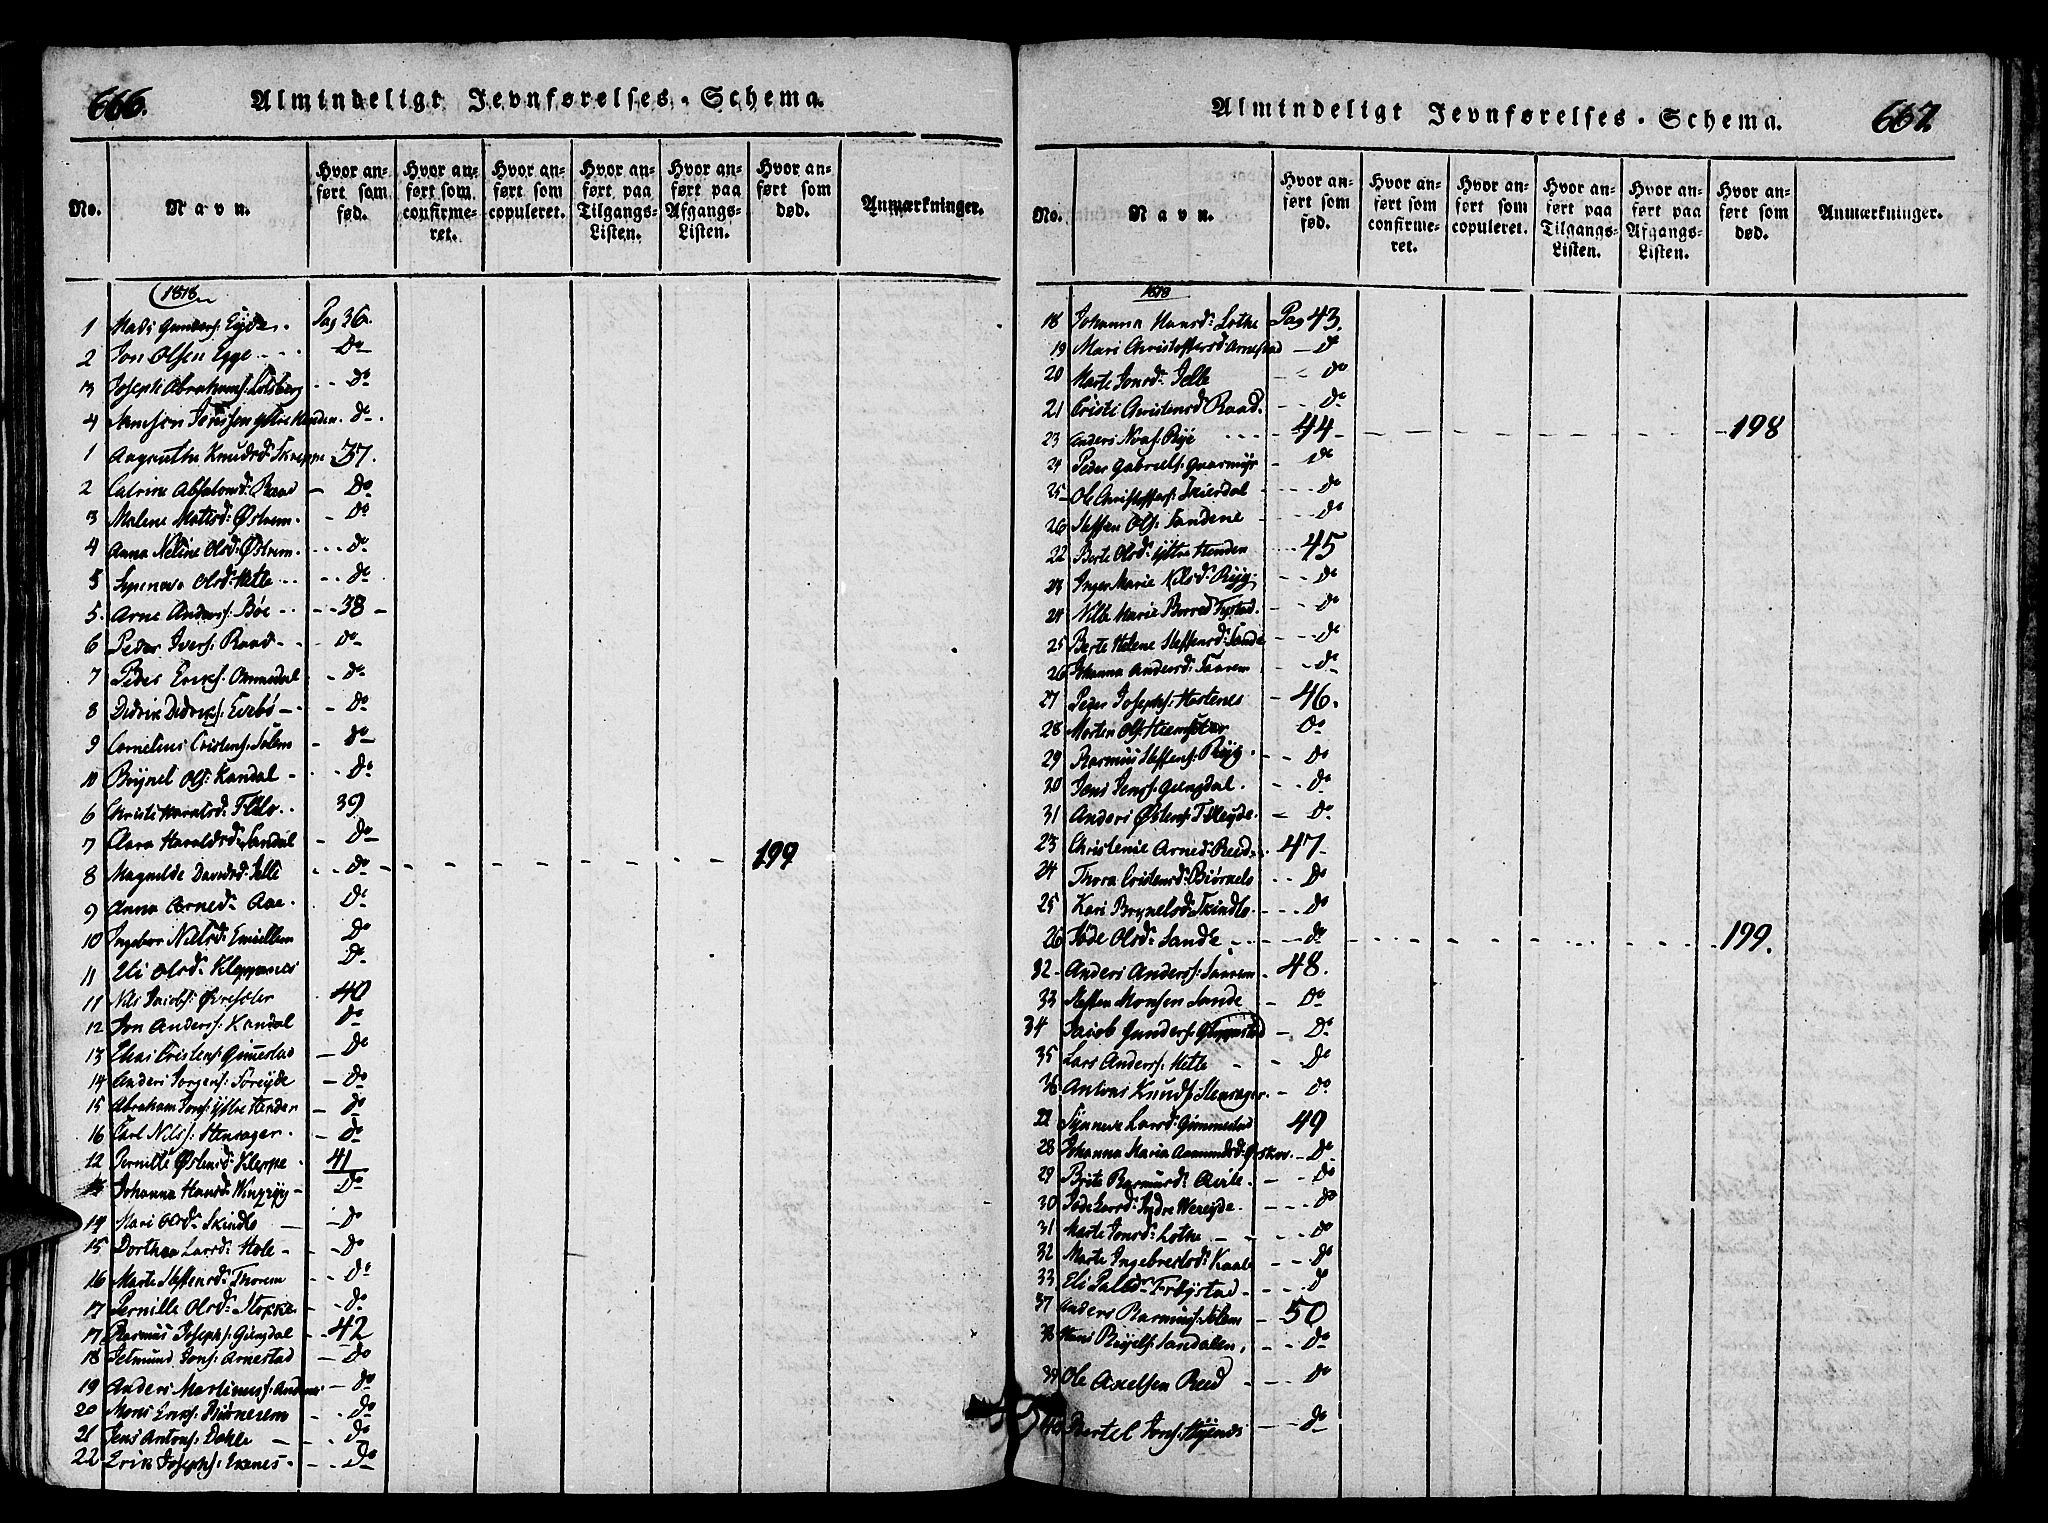 666. Almindeligt Jevnførelses-Schema.
No. Navn. Hvor anført som fød. Hvor anført som confirmeret. Hvor anført som copuleret. Hvor anført paa Tilgangs-Listen. Hvor anført paa Afgangs-Listen. Hvor anført som død. Anmærkninger.
1818
1 Mads Gunders: Eyde. Pag 36.
2 Jon Olsen Egge Do
3 Joseph Abrahams: Lotsberg Do
4 Samson Jonssen ytre Henden Do
1 Aagaathe Knudsd: Skreppe 37.
2 Catrine Absalonsd: Raad Do
3 Malene Matisd: Østrem Do
4 Anna Neline Olsd: Østrem Do
5 Olsd: Hetle Do
5. Arne Anders: Bøe 38
6 Peder Ivers: Raad Do
7 Peder Eriks: Ommedal Do
8 Didrik Didriks: Evebø Do
9 Cornelius Cristens: Solem Do
10 Brynel Ols: Kandal Do
6 Christi Haraldsd: FløLo 39
7 Clara Haraldsd: Sandal Do
8 Magnilde Davidsd: Jelle Do 199
9 Anna Arned: Aae Do
10 Ingebor Nilsd: Do
11 Eli Olsd: Kleppenes Do
11 Nils Jacobs: 40
12 Jon Anders: Kandal Do
13 Elias Cristens: Gimestad Do
14 Anders Jørgens: Sørejde Do
15 Abraham Jons: ytre Henden Do
16 Carl Nils: Stensager Do
12 Pernille Østensd: Kleppe 41
13 Johanna Hansd: Do
14 Mari Olsd: Skindlo Do
15 Dorthea Larsd: Hole Do
16 Marte Steffensd: Thorem Do
17 Pernille Olsd: Stokke Do
17 Rasmus Josephs: Gengdal 42
18 Jetmund Jons: Arnestad Do
19 Anders Martinus: Andenes Do
20 Mons Eriks: Do
21 Jens Antons: Dahle Do
22 Erik Josephs: Ekenes Do
Almindeligt Jevnførelses-Schema. 667
No. Navn. Hvor anført som fød. Hvor anført som confirmeret. Hvor anført som copuleret. Hvor anført paa Tilgangs-Listen. Hvor anført paa Afgangs-Listen. Hvor anført som død. Anmærkninger.
1818
18 Johanna Hansd: Lothe Pag 43.
19 Mari Christoffersd: Arnestad Do
20 Marte Jonsd: Jelle Do
21 Cristi Cristensd Raad. Do
23 Anders Rye 44 198
24 Peder Gabriels: Do
25 Ole Christoffers: Do
26 Steffen Ols: Sandene Do
22 Berte Olsd: ytre Henden 45
23 Inger Marie Nilsd: Ryg Do
24 Nille Marie Do
25 Berte Helene Steffensd: Sande Do
26 Johanna Andersd: Taarem Do
27 Peder Josephs: Hestenes 46.
28 Morten Ols: Do
29 Rasmus Steffens: Ryg Do
30 Jens Jens: Gengdal. Do
31 Anders Østens: Do
23 Christenie Arned: Reed 47
24 Thora Cristensd: Do
25 Kari Brynelsd: Skindlo Do
26 Søde Olsd: Sande Do 199.
32 Anders Anders: Taarem 48.
33 Steffen Monsen Sande Do
34 Jacob Gunders: Do
35 Lars Anders: Hetle Do
36 Antoni Knuds: Stensager Do
Synneve Larsd: Gimmestad 49
28 Johanna Maria Aamundsd: Do
29 Brite Rasmusd: Do
30 Søde Larsd: Indre Wereyde. Do
31 Marte Jonsd: Lothe Do
32 Marte Ingebretsd: Do
33 Eli Do
37 Anders Rasmus: Solem 50
38 Hans Sandalen Do
39 Ole Axelsen Reed Do
40 Bertel Jons: Do